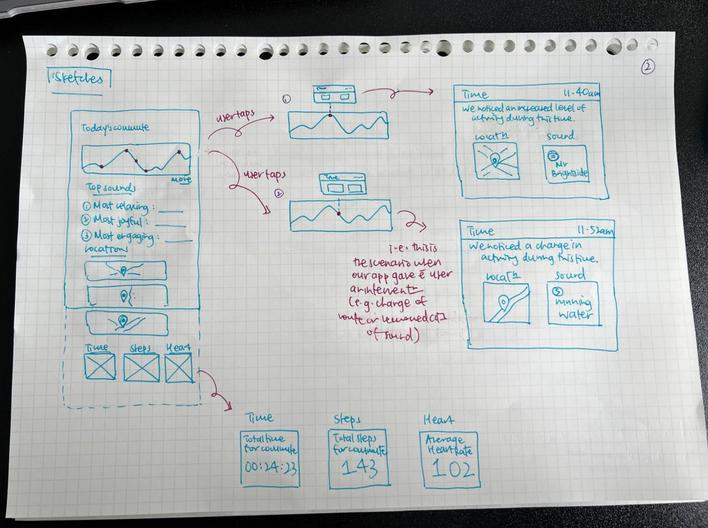 Sketches
2
Today's commute
more
Top sounds
1 Most relaxing :
2 Most joyful :
3 Most engaging :
locations
Time Steps Heart
user taps
user taps
1
2
Time
Time 11-40am
We noticed an increased level of
activity during this time.
locatn sound
Mr
Brightside
Time 11-52am
We noticed a change in
activity during this time.
locatn sound
running
water
i.e. this is
the scenario when
our app gave user
an intervent
(e.g. change of
route or
of sound)
Time Steps Heart
Total time
for commute
00:24:23
Total steps
for commute
143
Average
Heart Rate
102